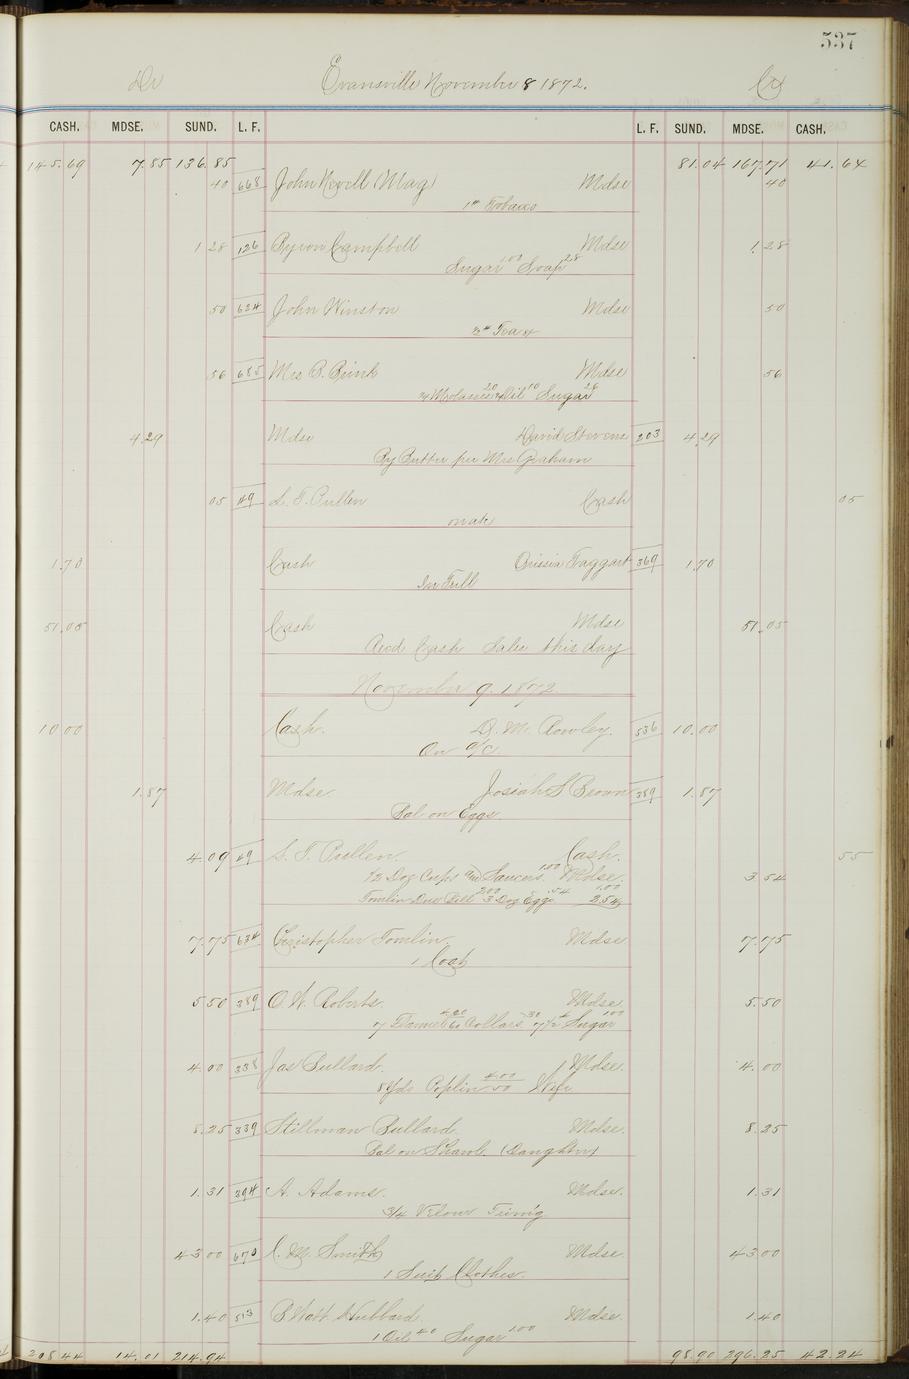 537
Dr Evansville November 8 1872. Cr
CASH. MDSE. SUND. L. F. L. F. SUND. MDSE. CASH.
145.69 7.85 136.85 81.04 167.71 41.64
40 668 John Nevill (Mag) Mdse 40
1 Tobacco
1 28 126 Byron Campbell Mdse 1.28
Sugar 100 Soap 28
50 624 John Winston Mdse 50
Tea
56 685 Mrs B. Brink Mdse 56
Molasses 20 Oil 10 Sugar 26
4.29 Mdse David Stevens 203 4.29
By Butter per Mrs Graham
05 49 S. T. Pullen Cash 05
on a/c
1.70 Cash Orissia Taggart 369 1.70
In Full
51.05 Cash Mdse 51.05
Recd Cash Sales this day
November 9. 1872.
10 00 Cash. D. M. Rowley. 536 10.00
On a/c.
1.87 Mdse. Josiah S Brown 389 1.87
Bal on Eggs.
4.09 49 S. T. Pullen. Cash. 55
1/2 Doz Cups and Saucers. 1.00 Mdse. 3 54
Tomlin Due Bill 2.00 3 Doz Eggs .54 1.00 2.54
7.75 634 Christopher Tomlin. Mdse 7.75
1 Coat
5 50 389 O. W. Roberts. Mdse. 5.50
7 Flannel 4.20/60 Collars. .30 7 1/2 # Sugar 1.00
4.00 338 Jas Bullard. Mdse. 4.00
8 Yds Poplin 4.00/50 Wife
8.25 339 Stillman Bullard. Mdse. 8.25
Bal on Shawl. (Daughter)
1.31 394 A. Adams. Mdse. 1.31
3/4 Velour
43 00 670 C. M. Smith Mdse. 43 00
1 Suit Clothes.
1.40 513 B Watt Hubbard. Mdse. 1.40
1 Oil 40 Sugar 1.00
208 44 14.01 214.94 98.90 296.25 42.24